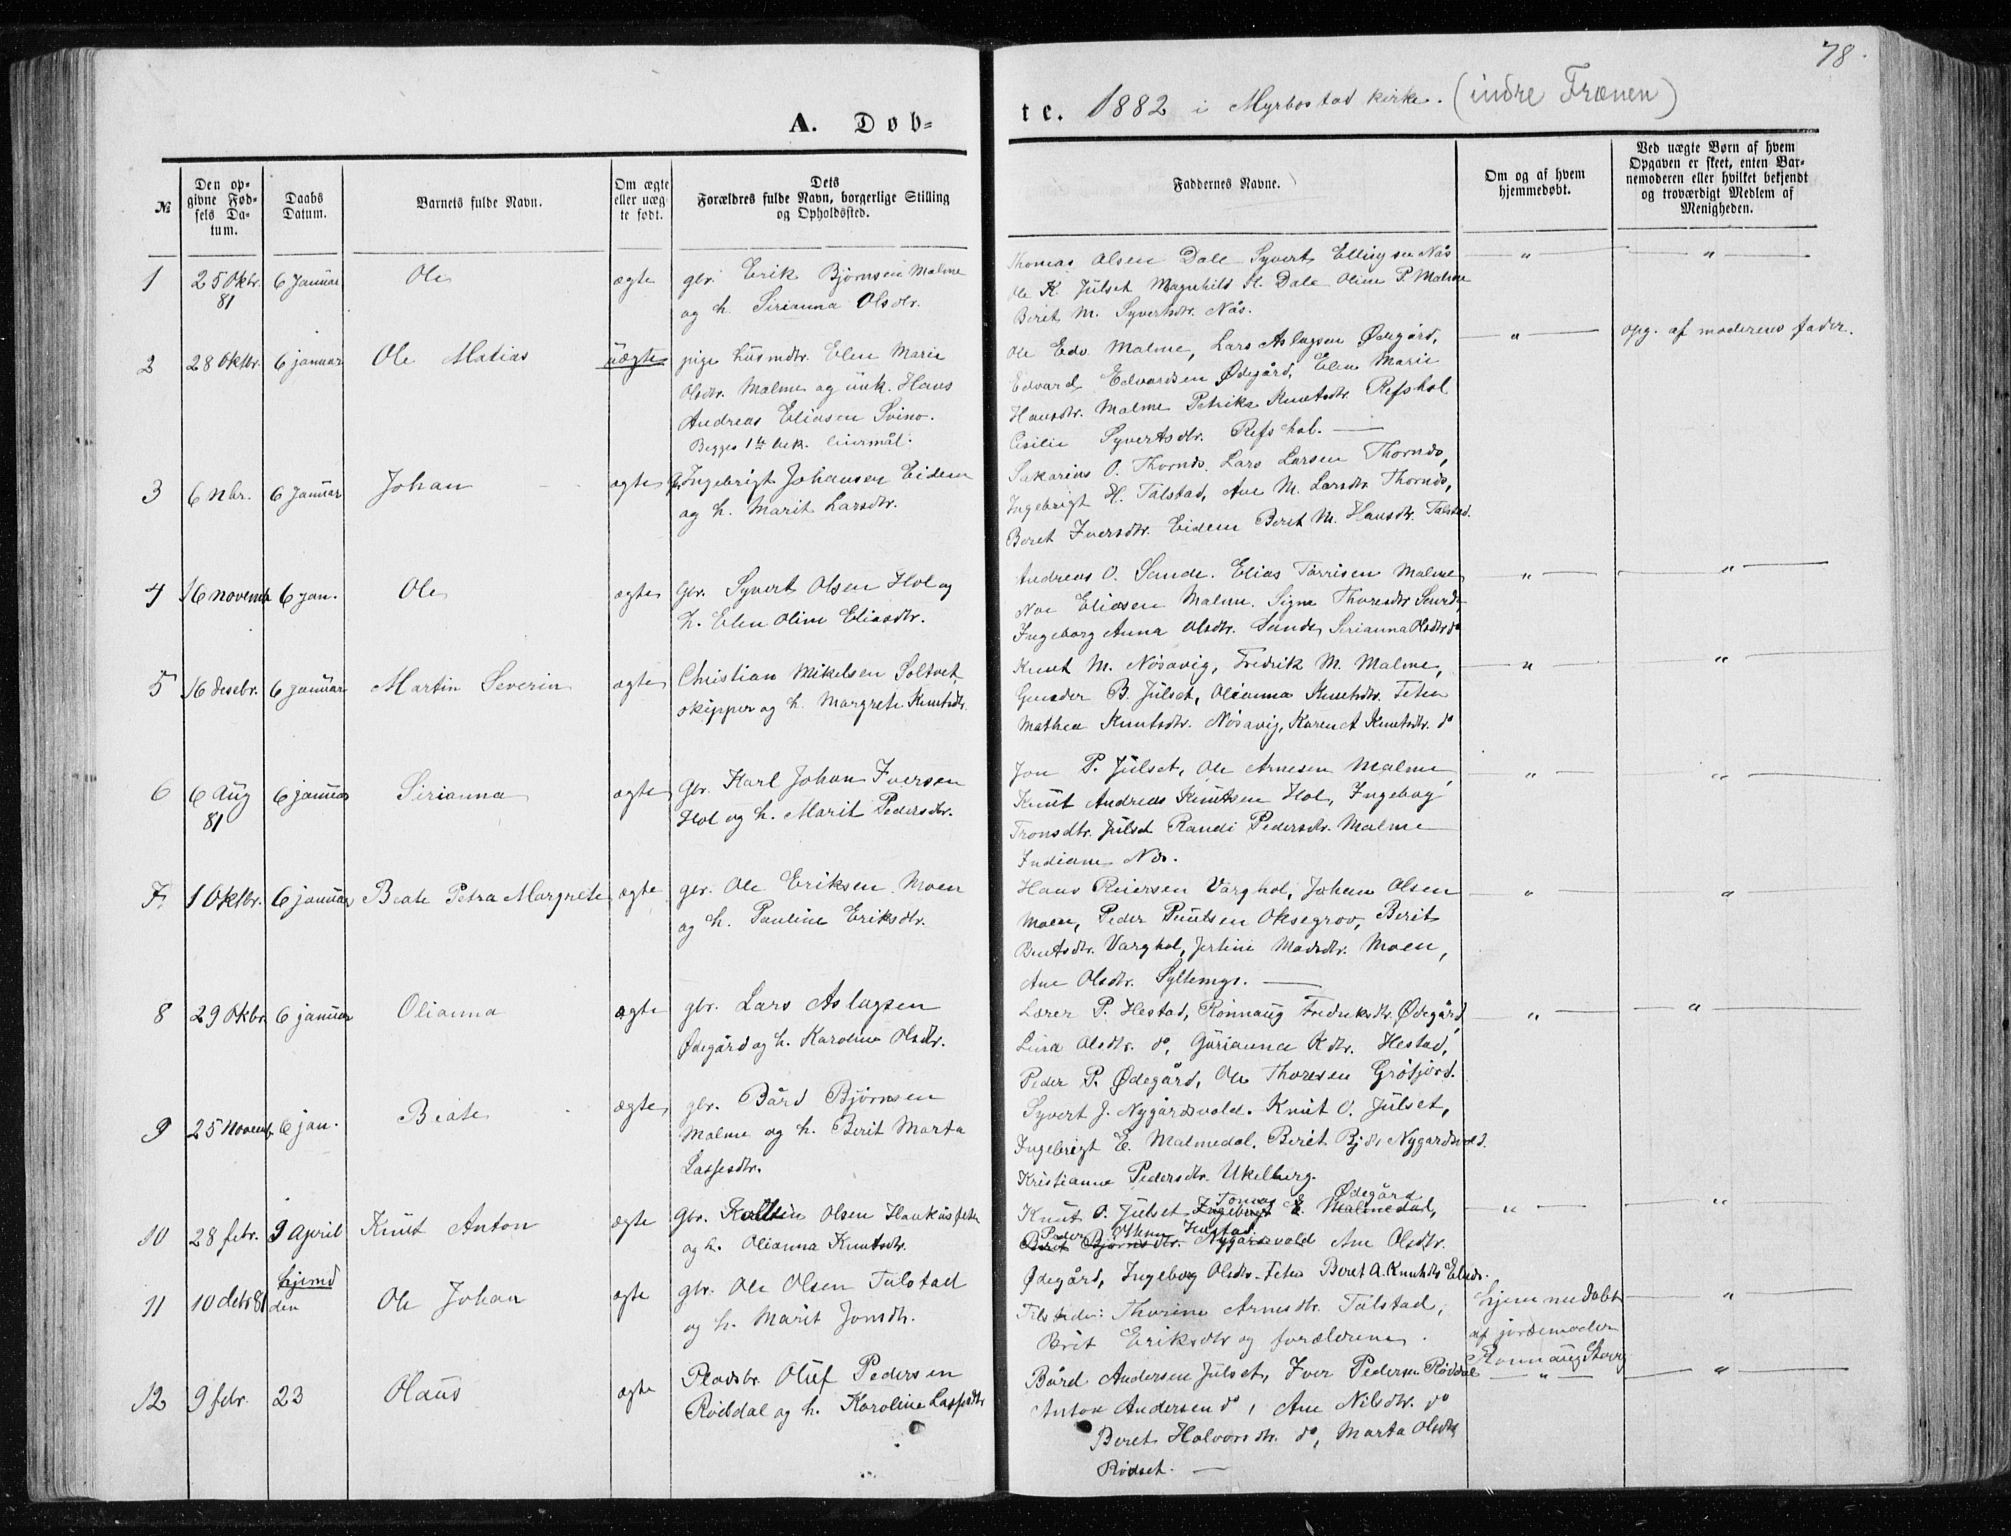 78.
A. Døb-
te. 1882 i Myrbostad kirke. (indre Frænen)
№
Den op-
givne Fød-
sels Da-
tum.
Daabs
Datum.
Barnets fulde Navn.
Om ægte
eller uæg-
te født.
Dets
Forældres fulde Navn, borgerlige Stilling
og Opholdssted.
Faddernes Navne.
Om og af hvem
hjemmedøbt.
Ved uægte Børn af hvem
Opgaven er skeet, enten Bar-
nemoderen eller hvilket bekjendt
og troværdigt Medlem af
Menigheden.
1 25 Oktbr. 81 6 Januar Ole ægte gbr. Erik Bjørnsen Malme
og h. Sirianna Olsdtr.
Thomas Olsen Dale Syvert Ellingsen Nås
Ole K. Julset Magnhild H. Dale Oline P. Malme
Berit M. Syvertsdtr. Nås.
" "
2 28 Oktbr. 6 januar Ole Matias uægte pige husmdtr. Elen Marie
Olsdtr. Malme og unk. Hans
Andreas Eliasen Svino.
Begges 1ste bek. leiermål.
Ole Edv. Malme, Lars Aslagsen Ødegård,
Edvard Edvardsen Ødegård, Elen Marie
Hansdtr. Malme Petrika Knutsdtr. Refshol
Cesilie Syvertsdtr. Refshol.
" opg. af moderens fader.
3 6 nbr. 6 Januar Johan ægte g. Ingebrigt Johansen Eidem
og h. Marit Larsdtr.
Sakarias O. Thornds. Lars Larsen Thornds,
Ingebrigt H. Talstad, Ane M. Larsdtr. Thornds,
Beret Iversdtr. Eidem Beret M. Hansdtr. Talstad.
4 16 novemb. 6 jan. Ole ægte Gbr. Syvert Olsen Hol og
h. Elen Oline Eliasdtr.
Andreas O. Sande. Elias Tørrisen Malme
Noe Eliasen Malme. Signe Thoresdtr Sande
Ingeborg Anna Olsdtr. Sande, Sirianna Olsdtr do
" "
5 16 desebr. 6 januar Martin Severin ægte Christian Mikelsen Soltvet,
skipper og h. Margrete Knutsdtr.
Knut M. Nøsavig, Fredrik M. Malme,
Gunder B. Julset, Olianna Knutsdtr. Teten
Mathea Knutsdtr. Nøsavig, Karen A Knutsdtr. do
" "
6 6 Aug 81 6 januar Sirianna ægte Gbr. Karl Johan Iversen
Hol og h. Marit Pedersdtr.
Jon P. Julset, Ole Arnesen Malme,
Knut Andreas Knutsen Hol, Ingebog
Tronsdtr. Julset Randi Pedersdtr. Malme
Indiane Nås.
" "
7. 1 Oktbr. 6 januar Beate Petra Margrete ægte gbr. Ole Eriksen Moen
og h. Pauline Eriksdtr.
Hans Reiersen Varghol, Johan Olsen
Moen, Peder Knutsen Oksegrov, Berit
Bentsdtr. Varghol, Jertine Madsdtr. Moen,
Ane Olsdtr. Syltemyr.
" "
8 29 Okbr. 6 januar Olianna ægte gbr. Lars Aslagsen
Ødegård og h. Karoline Olsdtr.
Lærer P. Hestad, Rønnaug Fredriksdtr. Ødegård,
Lina Olsdtr. do, Gurianna Kdtr. Hestad,
Peder P. Ødegård, Ole Thoresen Gråfjord.
" "
9 25 Novemb. 6 jan. Beate ægte gbr. Bård Bjørnsen
Malme og h. Berit Marta
Lassesdtr.
Syvert J. Nygårdsvold. Knut O. Julset,
Ingebrigt E. Malmedal. Beret Bj.dr Nygardsvold.
Kristianne Pedersdtr. Ukelberg.
10 28 febr. 9 April Knut Anton ægte Gbr. Olsen Haukåsfeten
og h. Olianna Knutsdtr.
Knut O. Julset Ingebrigt E. Malmedal, Tomas Ødegård
Beret Bjørnsdtr. Nygårdsvold Peder Hestad Ane Olsdtr.
Ødegård, Ingebog Olsdtr. Teten Beret A. Knutsdtr
" "
11 10 debr 81 hjemd den Ole Johan ægte gbr. Ole Olsen Talstad
og h. Marit Jonsdtr.
Tilstede: Thorine Arnesdtr. Talstad,
Brit Eriksdtr og forælderne.
hjemmedøbt
af jordemoder
Rønnaug Stavig
"
12 9 febr. 23 Olaus ægte Pladsbr. Oluf Pedersen
Rødal og h. Karoline Lassesdtr
Bård Andersen Julset, Iver Pedersen Rødal
Anton Andersen do, Ane Nilsdtr. do
Beret Halvorsdtr. do, Marta Olsdtr
Rødset.
" "